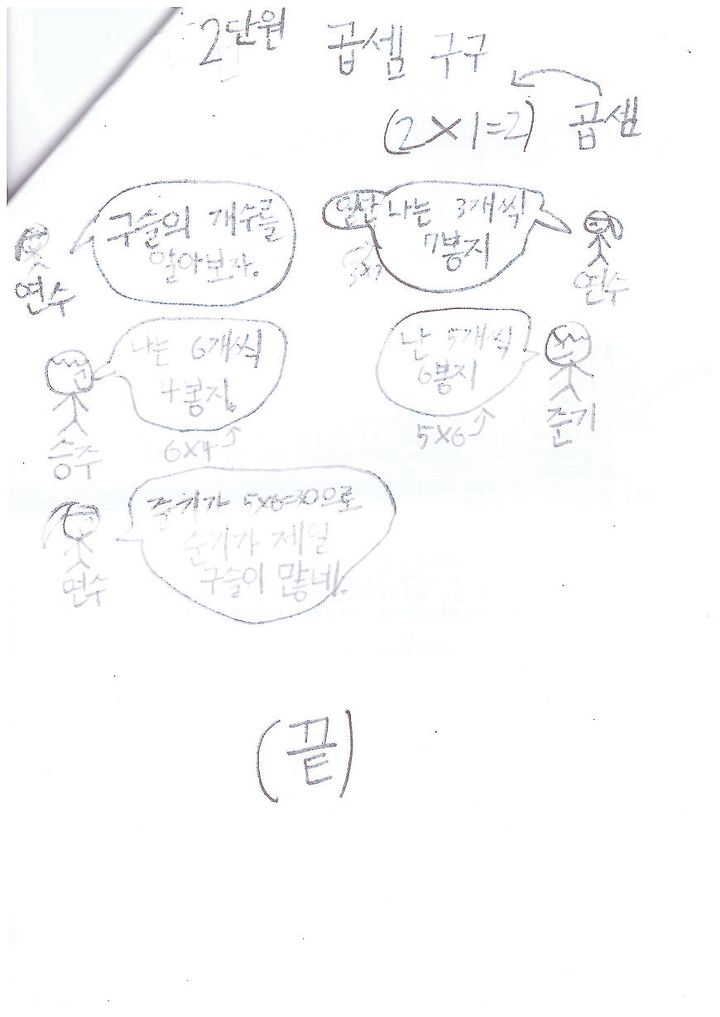 2단원 곱셈 구구
(2×1=2) 곱셈
구슬의 개수를
알아보자.
연수
일단 나는 3개씩
7봉지
3×7
연수
나는 6개씩
4봉지.
6×4
승주
난 5개씩
6봉지
5×6
준기
준기가 5×6=30으로
준기가 제일
구슬이 많네.
연수
(끝)